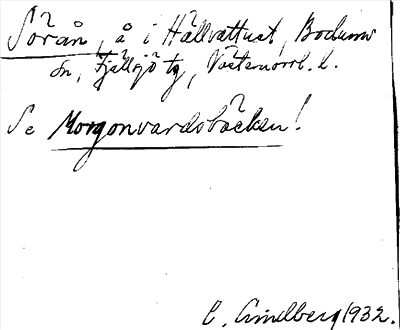 Sörån, å i Hällvattnet, Bodums
sn, Fjällsjö tg, Västernorrl. l.
Se Morgonvardsbäcken!
C. Lindberg 1932.